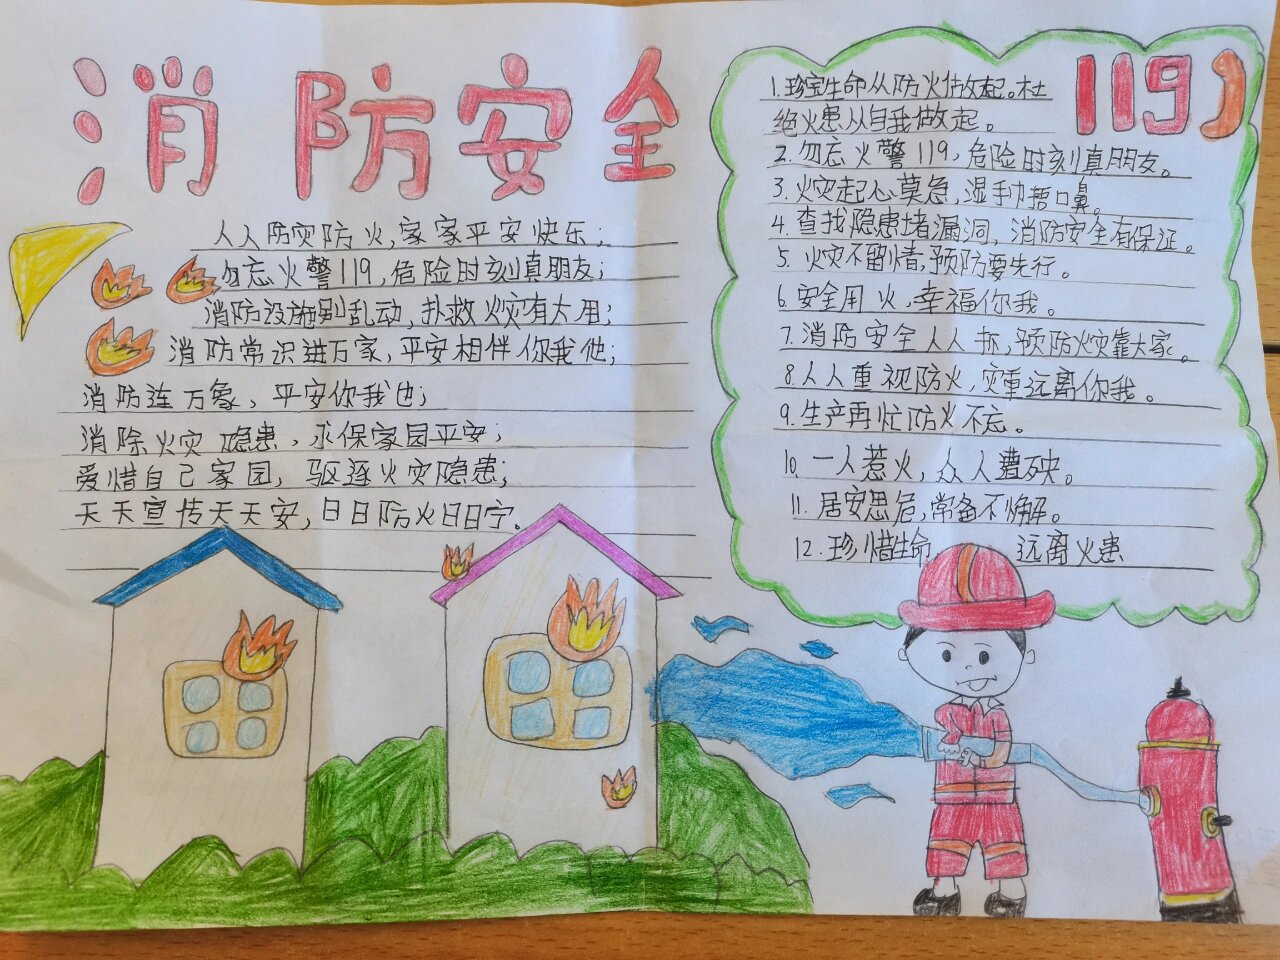 消防安全
人人防灾防火,家家平安快乐;
勿忘火警119,危险时刻真朋友;
消防设施别乱动,扑救火灾有大用;
消防常识进万家,平安相伴你我他;
消防连万象,平安你我也;
消除火灾隐患,永保家园平安;
爱惜自己家园,驱逐火灾隐患;
天天宣传天天安,日日防火日日宁.
119
1.珍宝生命从防火做起。杜
绝火患从自我做起。
2.勿忘火警119,危险时刻真朋友。
3.火灾起心莫急,湿手巾捂口鼻。
4.查找隐患堵漏洞,消防安全有保证。
5.火灾不留情,预防要先行。
6.安全用火,幸福你我。
7.消防安全人人抓,预防火灾靠大家。
8.人人重视防火,灾重远离你我。
9.生产再忙防火不忘。
10.一人惹火,众人遭殃。
11.居安思危,常备不懈。
12.珍惜生命 远离火患